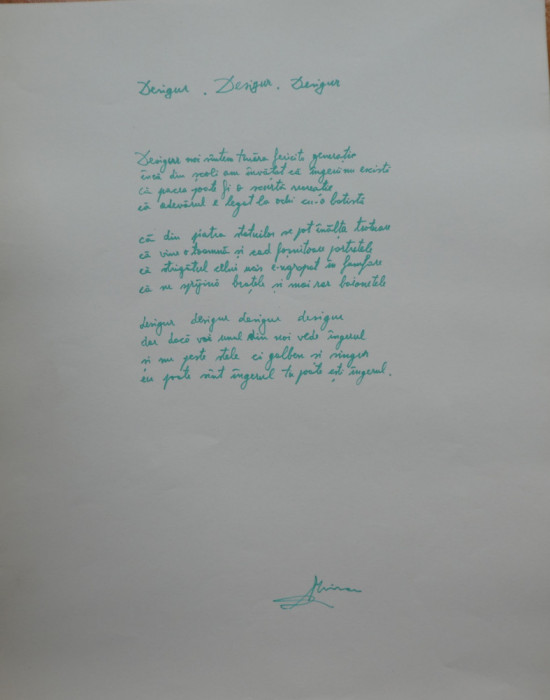 Desigur . Desigur . Desigur
Desigur noi sîntem tînăra fericită generație
încă din școli am învățat că îngerii nu există
că pacea poate fi o scurtă recreație
că adevărul e legat la ochi cu-o batistă
că din piatra statuilor se pot înălța
că vine o toamnă și cad foșnitoare portretele
că strigătul celui ucis e-ngropat în fanfare
că ne sprijină brațele și mai rar baionetele
desigur desigur desigur desigur
dar dacă unul din noi vede îngerul
și nu peste stele ci galben și singur
eu poate sînt îngerul tu poate ești îngerul.